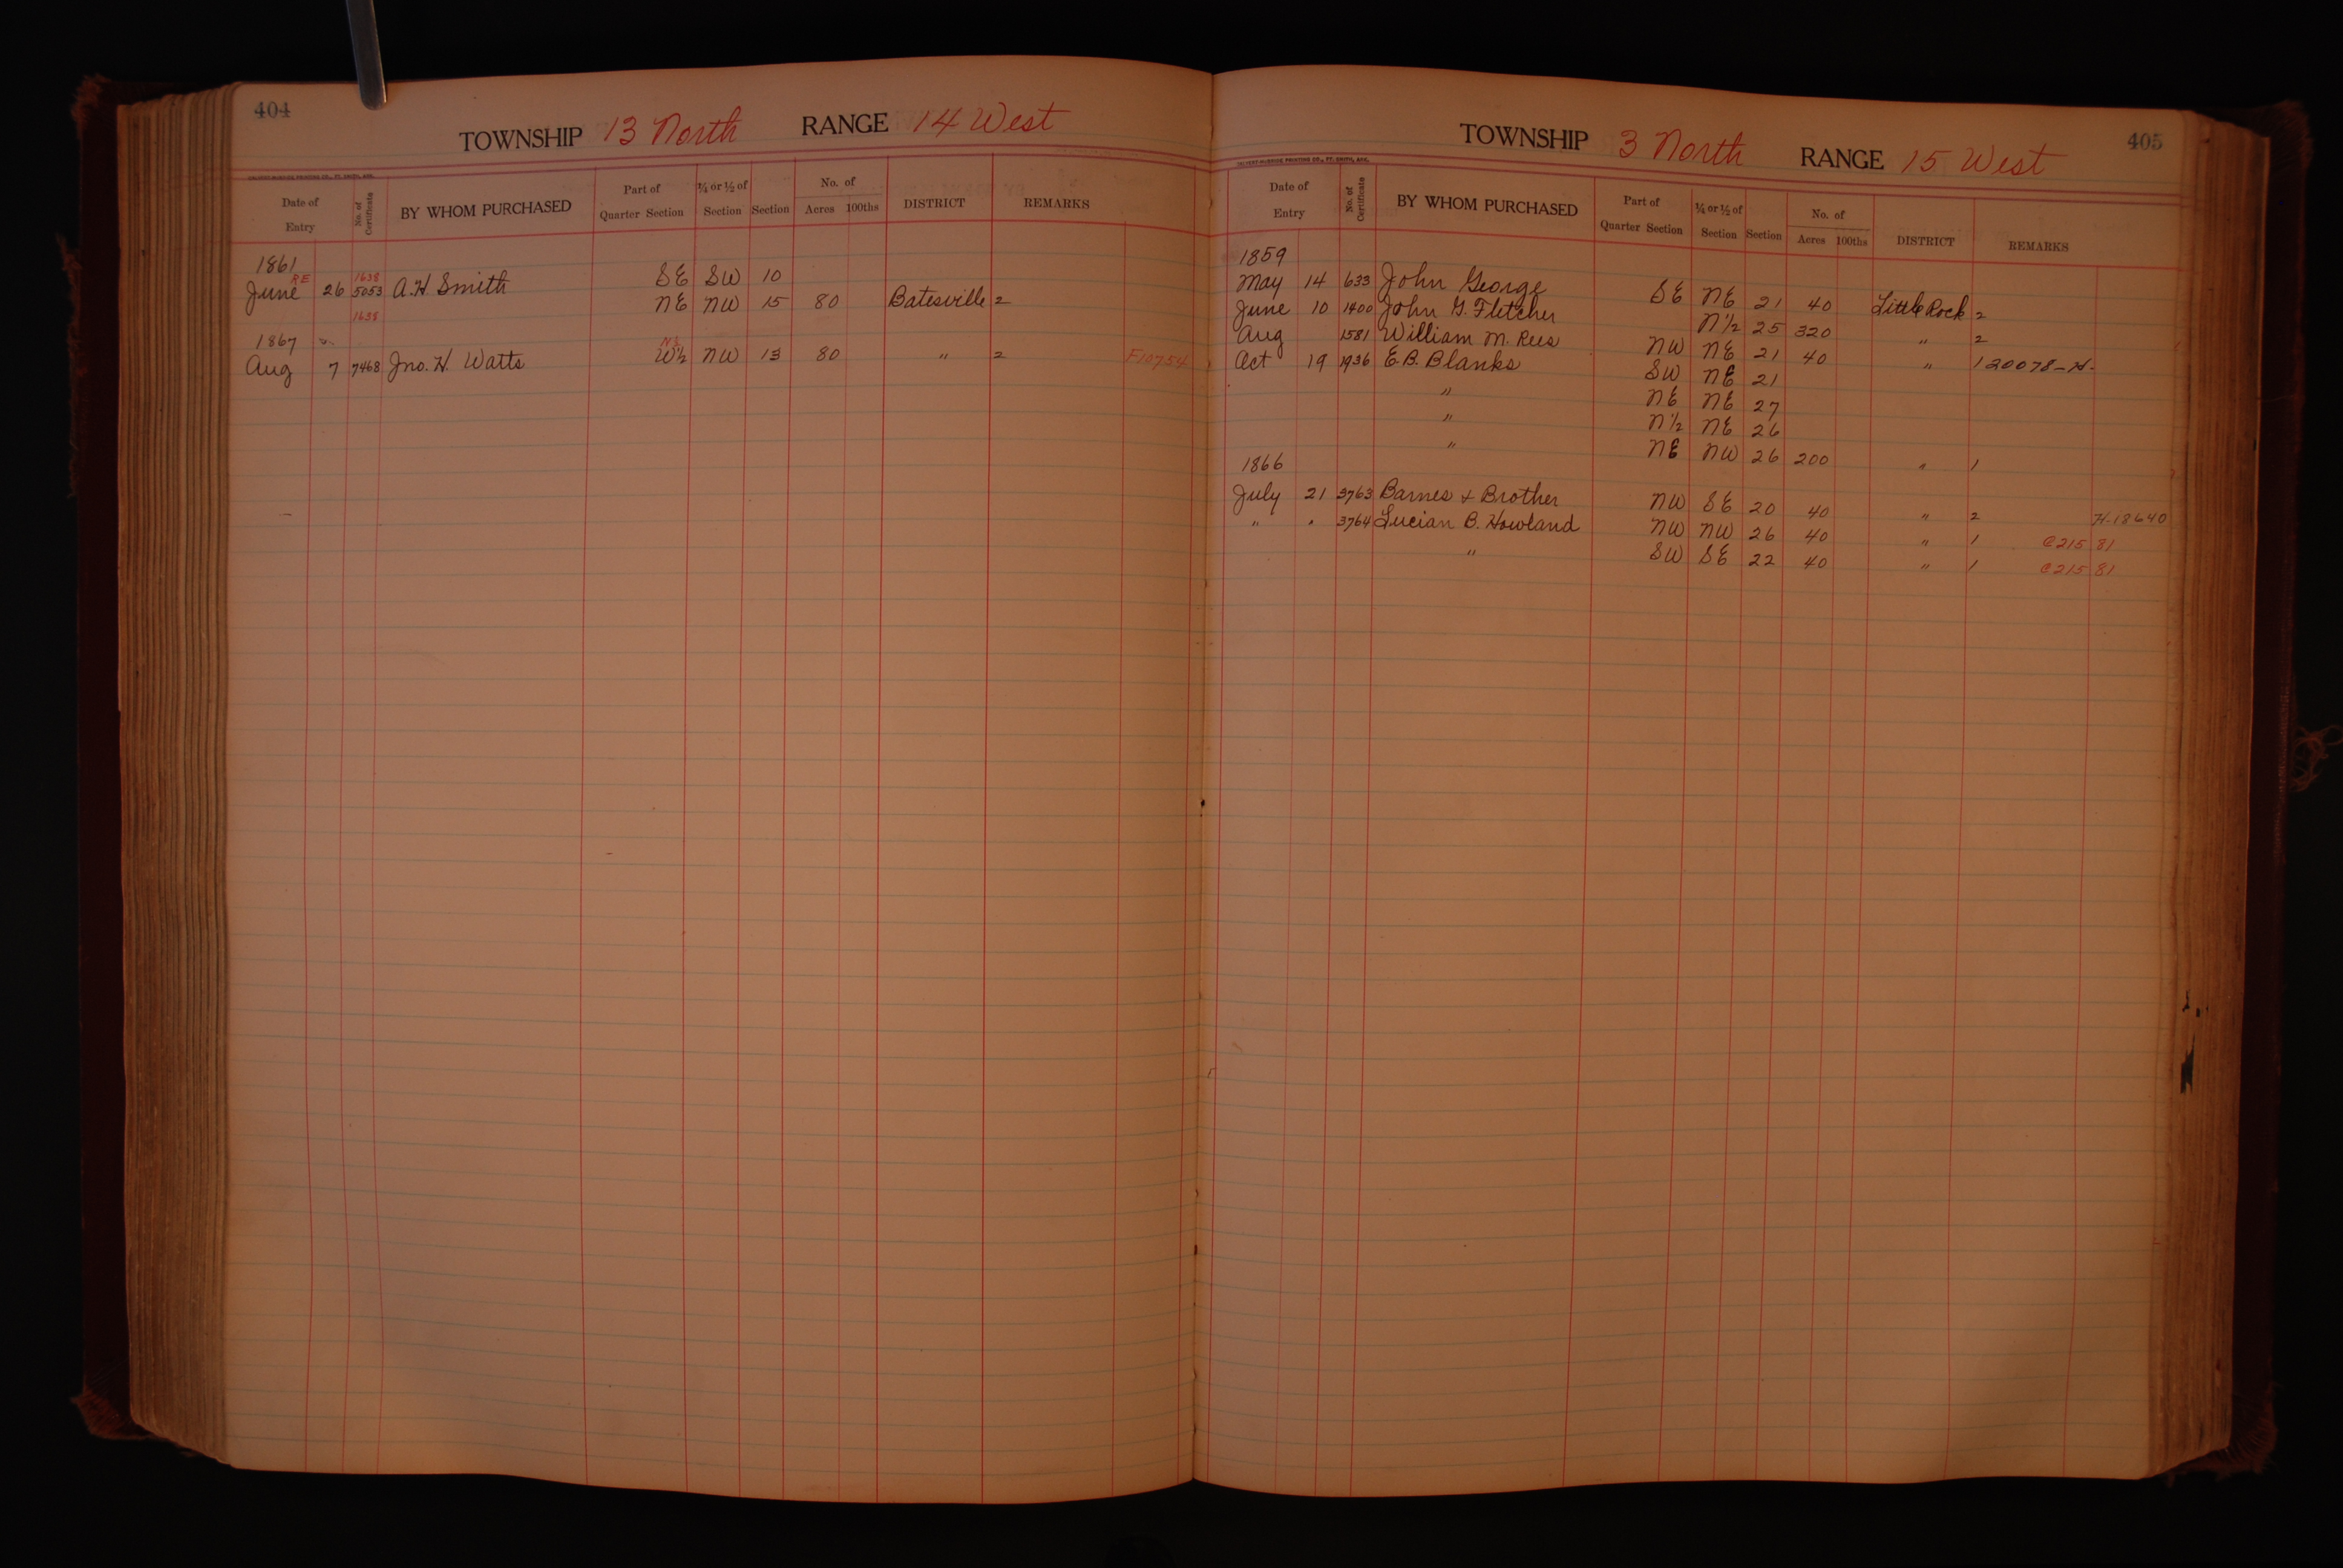 404
TOWNSHIP 13 North RANGE 14 West
CALVERT-McBRIDE PRINTING CO., FT. SMITH, ARK.
Date of Entry No. of Certificate BY WHOM PURCHASED Part of Quarter Section ¼ or ½ of Section Section No. of Acres 100ths DISTRICT REMARKS
1861
RE 1638
June 26 5053 A. H. Smith SE SW 10
NE NW 15 80 Batesville 2
1638
1867
Aug 7 7468 Jno. H. Watts W½ NW 13 80 " 2 F10754
405
TOWNSHIP 3 North RANGE 15 West
CALVERT-McBRIDE PRINTING CO., FT. SMITH, ARK.
Date of Entry No. of Certificate BY WHOM PURCHASED Part of Quarter Section ¼ or ½ of Section Section No. of Acres 100ths DISTRICT REMARKS
1859
May 14 633 John George SE NE 21 40 Little Rock 2
June 10 1400 John G. Fletcher N½ 25 320 " 2
Aug 1581 William M. Rees NW NE 21 40 " 1 20078-H-
Oct 19 1936 E. B. Blanks SW NE 21
" NE NE 27
" N½ NE 26
" NE NW 26 200 " 1
1866
July 21 3763 Barnes & Brother NW SE 20 40 " 2 H-18640
" " 3764 Lucian B. Howland NW NW 26 40 " 1 C215 81
" SW SE 22 40 " 1 C215 81